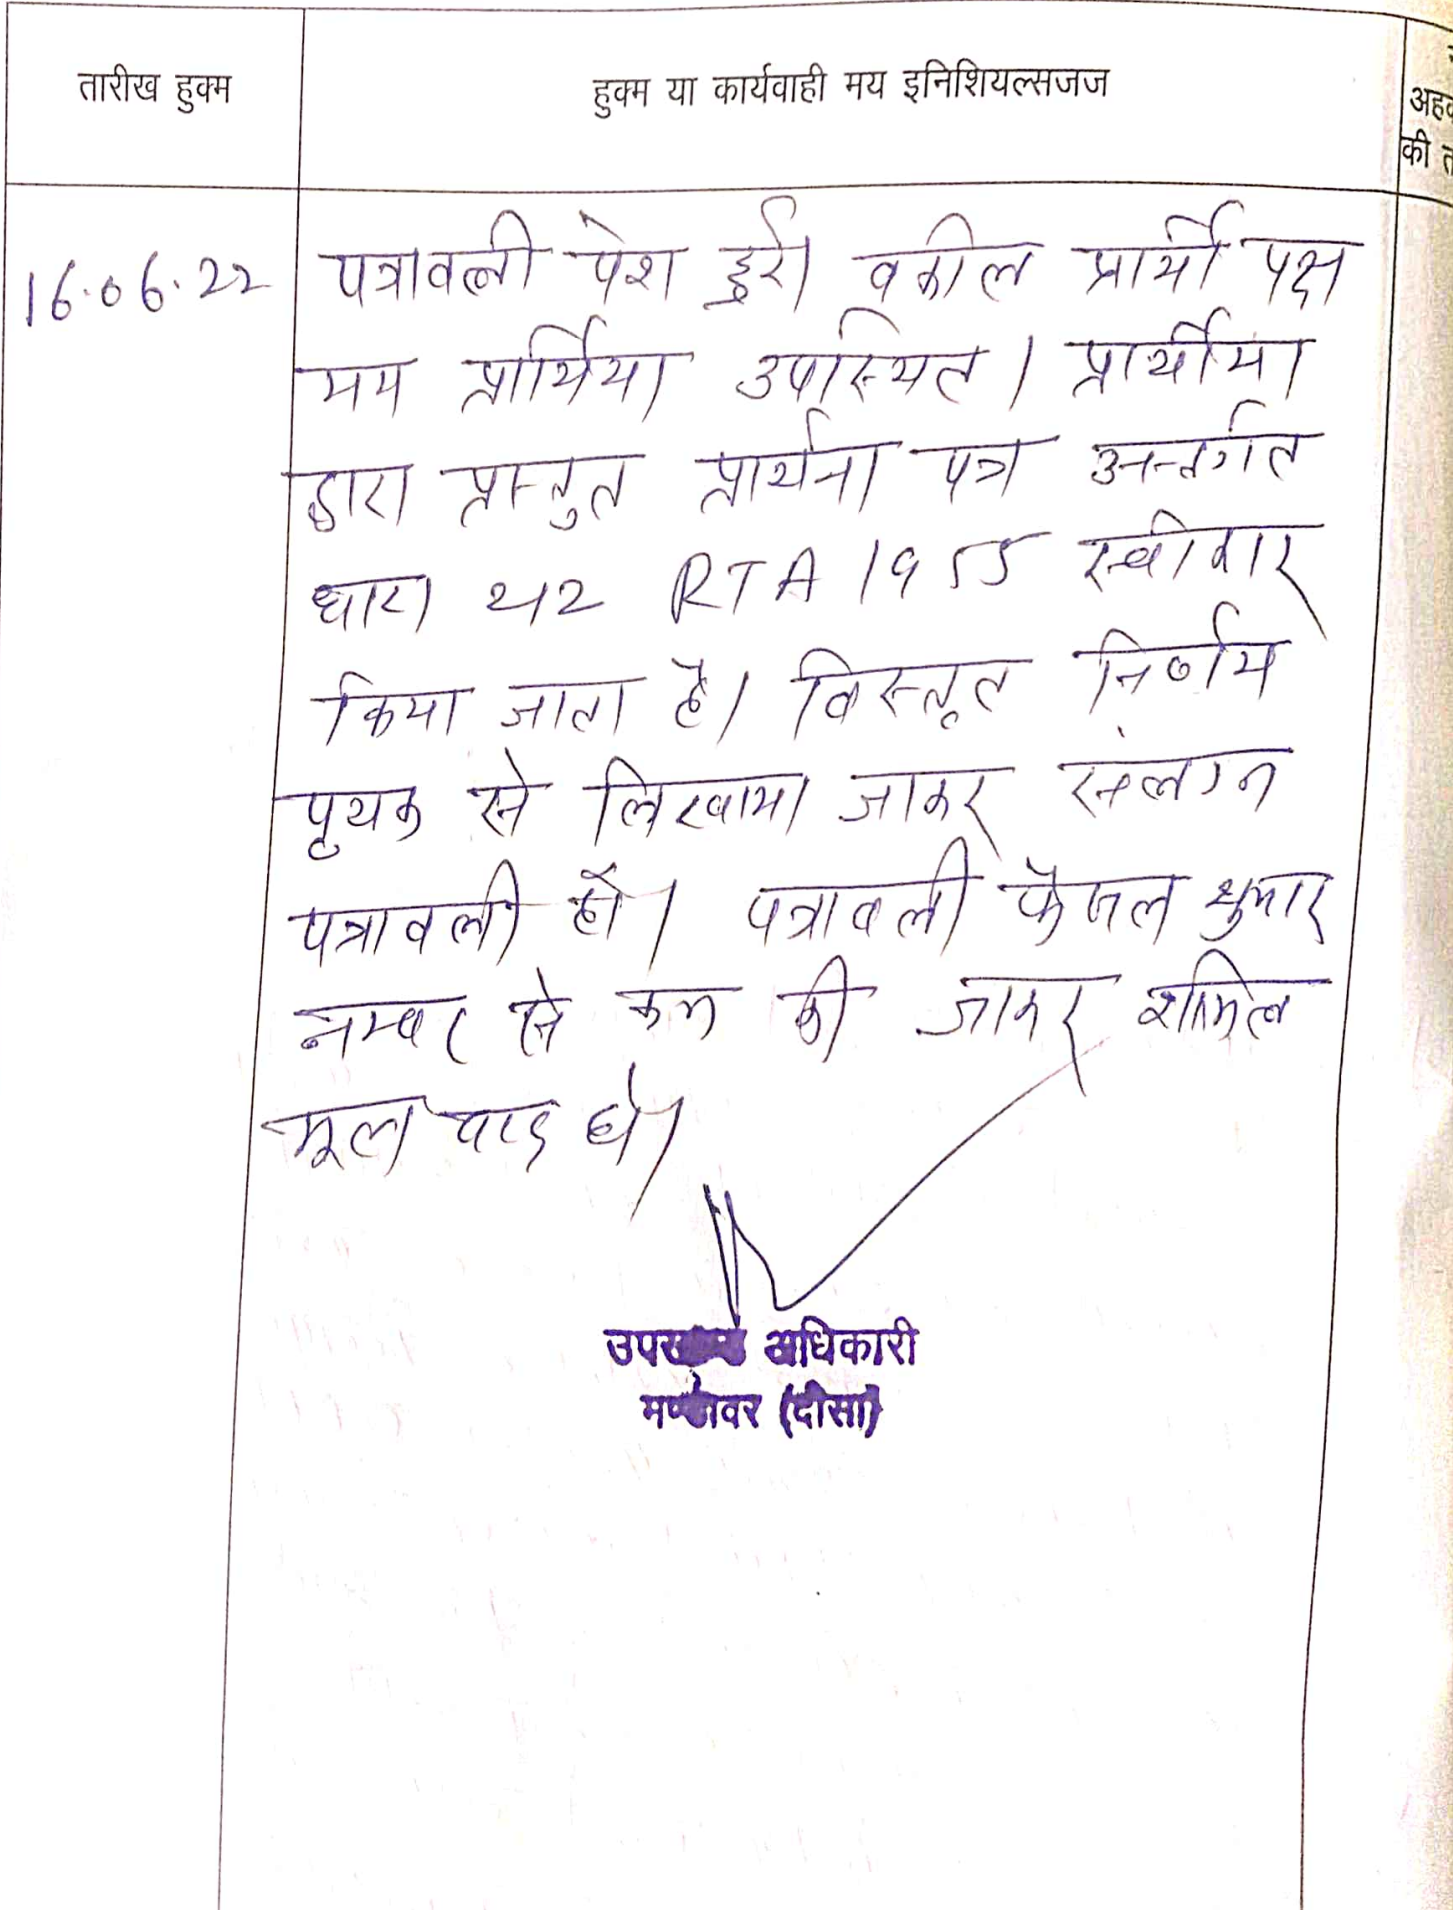 तारीख हुक्म
हुक्म या कार्यवाही मय इनिशियल्सजज
अह
की त
16.06.22
पत्रावली पेश हुई। वकील प्रार्थी पक्ष
मय प्रार्थिया उपस्थित। प्रार्थीया
द्वारा प्रस्तुत प्रार्थना पत्र अन्तर्गत
धारा 212 RTA 1955 स्वीकार
किया जाता है। विस्तृत निर्णय
पृथक से लिखाया जाकर संलग्न
पत्रावली हो। पत्रावली फैसल शुमार
नम्बर से कम की जाकर शामिल
मूल वाद हो।
उपखण्ड अधिकारी
मण्डावर (दौसा)